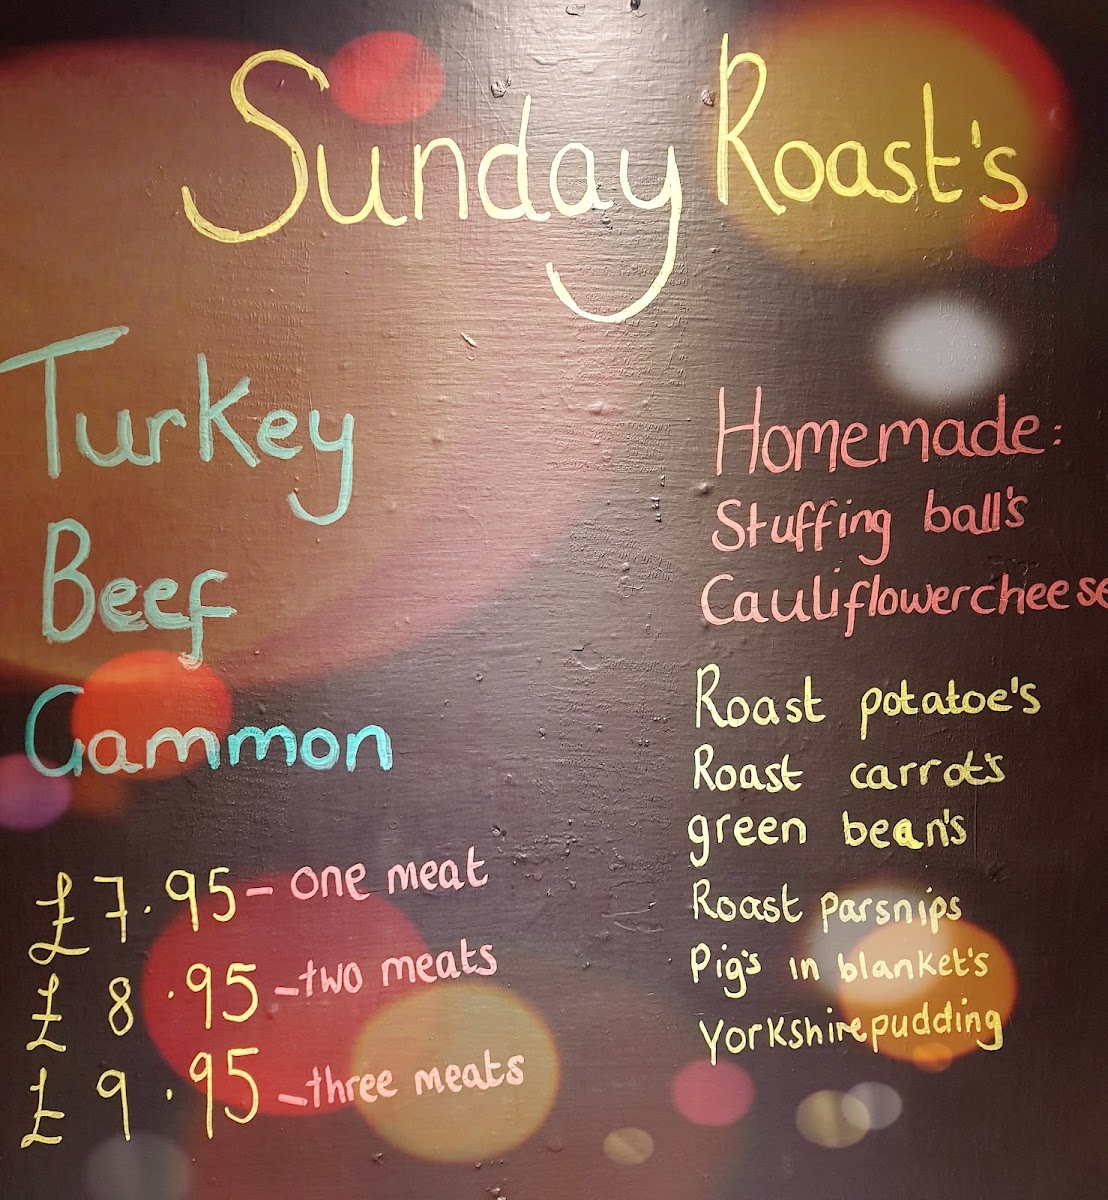 Sunday Roast's
Turkey
Beef
Gammon
£7.95 - one meat
£8.95 - two meats
£9.95 - three meats
Homemade:
Stuffing ball's
Cauliflowercheese
Roast potatoe's
Roast carrot's
green bean's
Roast parsnips
Pig's in blanket's
Yorkshire pudding